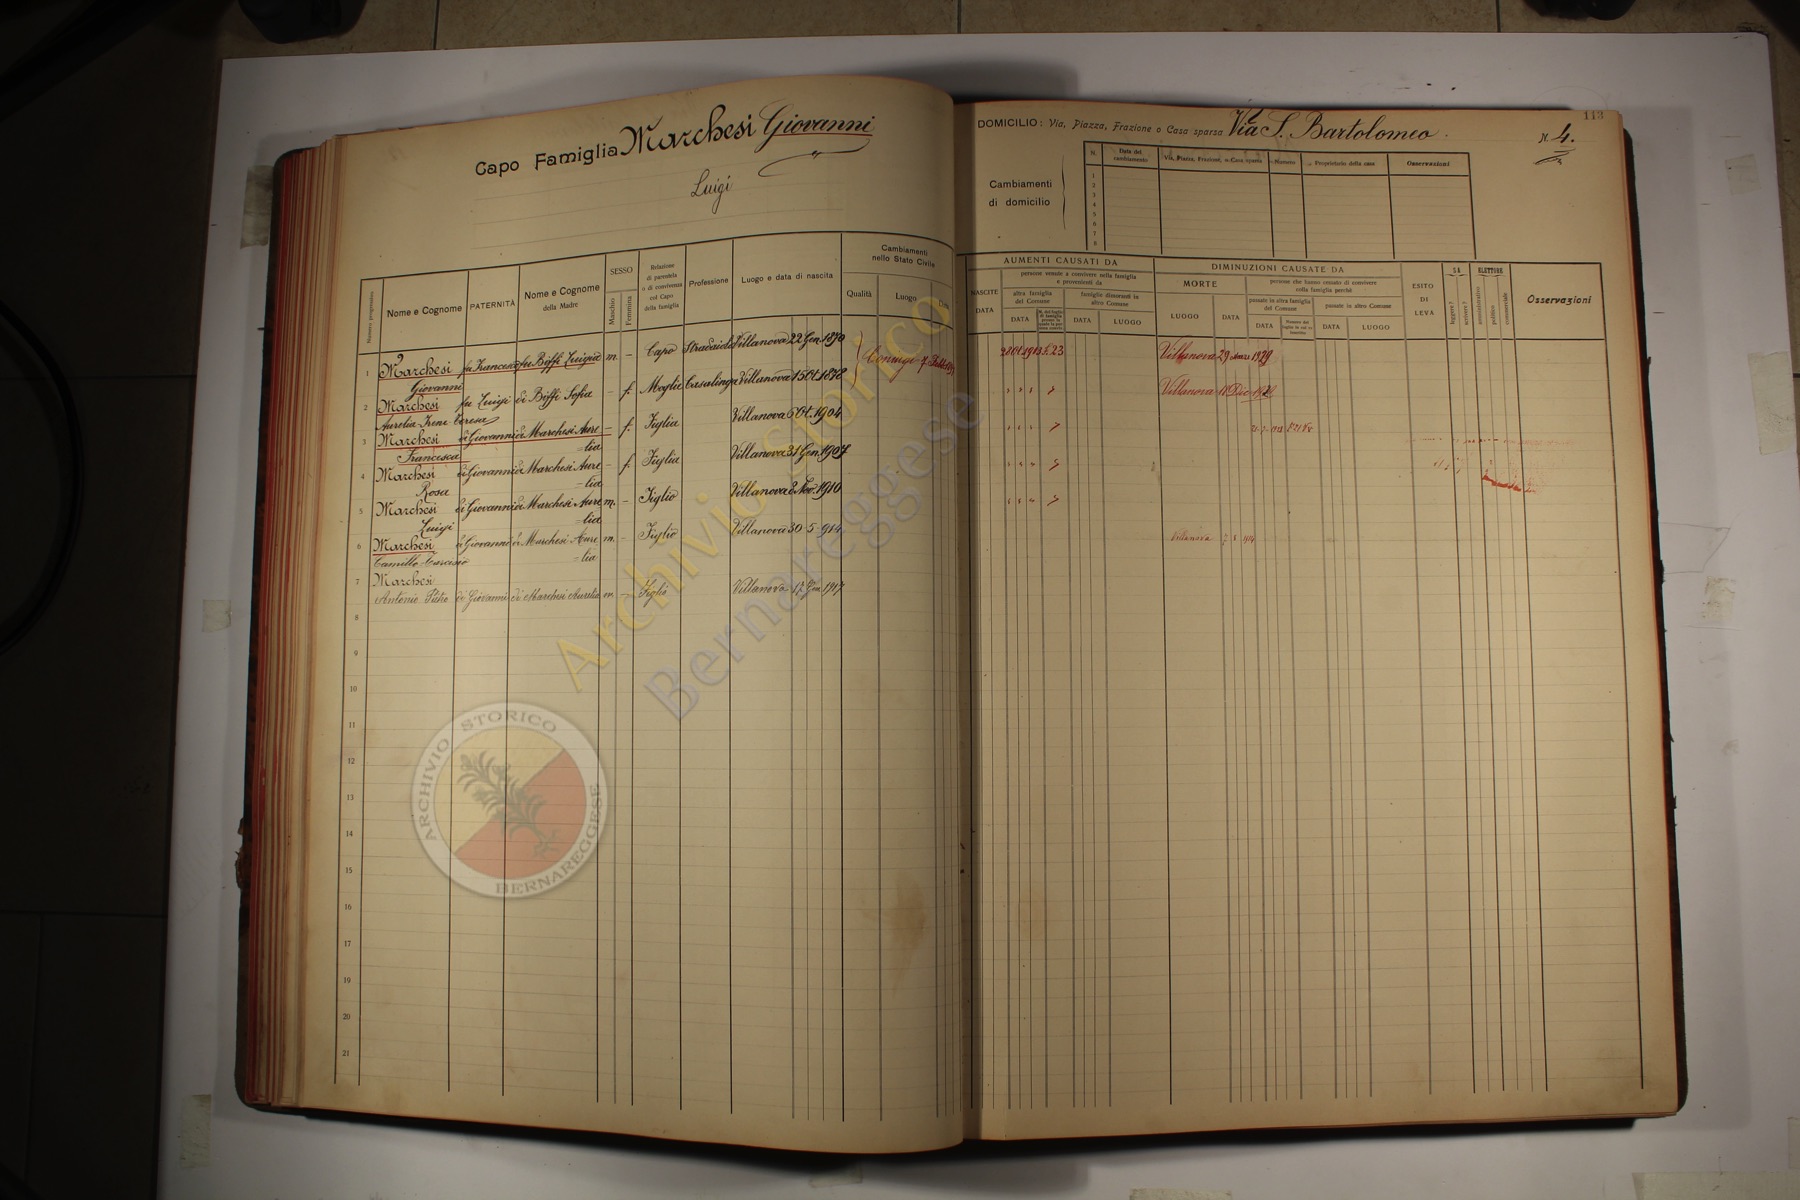 Capo Famiglia Marchesi Giovanni
Luigi
Numero progressivo
Nome e Cognome
PATERNITÀ
Nome e Cognome
della Madre
SESSO
Maschio
Femmina
Relazione
di parentela
o di convivenza
col Capo
della famiglia
Professione
Luogo e data di nascita
Cambiamenti
nello Stato Civile
Qualità
Luogo
Data
1 Marchesi fu Francesco fu Biffi Luigia m. - Capo Villanova 22 Gen. 1870 Coniuge
Giovanni
2 Marchesi fu Luigi di Biffi Sofia - f. Moglie Casalinga Villanova 15 Ot. 1878
Aurelia Irene Teresa
3 Marchesi di Giovanni di Marchesi Aure - f. Figlia Villanova 6 Ot. 1904
Francesca =lia
4 Marchesi di Giovanni di Marchesi Aure - f. Figlia Villanova 31 Gen. 1907
Rosa =lia
5 Marchesi di Giovanni di Marchesi Aure m. - Figlio Villanova 2 Nov. 1910
Luigi =lia
6 Marchesi di Giovanni di Marchesi Aure m. - Figlio Villanova 30-5-914
Camillo Tarcisio =lia
7 Marchesi
Antonio Pietro di Giovanni di Marchesi Aurelia m. - Figlio Villanova 17 Gen 1917
8
9
10
11
12
13
14
15
16
17
18
19
20
21
113
DOMICILIO: Via, Piazza, Frazione o Casa sparsa Via S. Bartolomeo. N. 4.
Cambiamenti
di domicilio
N.
Data del
cambiamento
Via, Piazza, Frazione, o Casa sparsa
Numero
Proprietario della casa
Osservazioni
1
2
3
4
5
6
7
8
AUMENTI CAUSATI DA
NASCITE
DATA
persone venute a convivere nella famiglia
e provenienti da
altra famiglia
del Comune
DATA
famiglie dimoranti in
altro Comune
DATA
LUOGO
DIMINUZIONI CAUSATE DA
MORTE
LUOGO
DATA
persone che hanno cessato di convivere
colla famiglia perchè
passate in altra famiglia
del Comune
DATA
passate in altro Comune
DATA
LUOGO
ESITO
DI
LEVA
SA
leggere?
scrivere?
ELETTORE
amministrativo
politico
commerciale
Osservazioni
28 Ot. 1913 F. 23 Villanova 29 1929
Villanova 11 Dic.
Villanova
Archivio storico
Bernareggese
ARCHIVIO STORICO
BERNAREGGESE